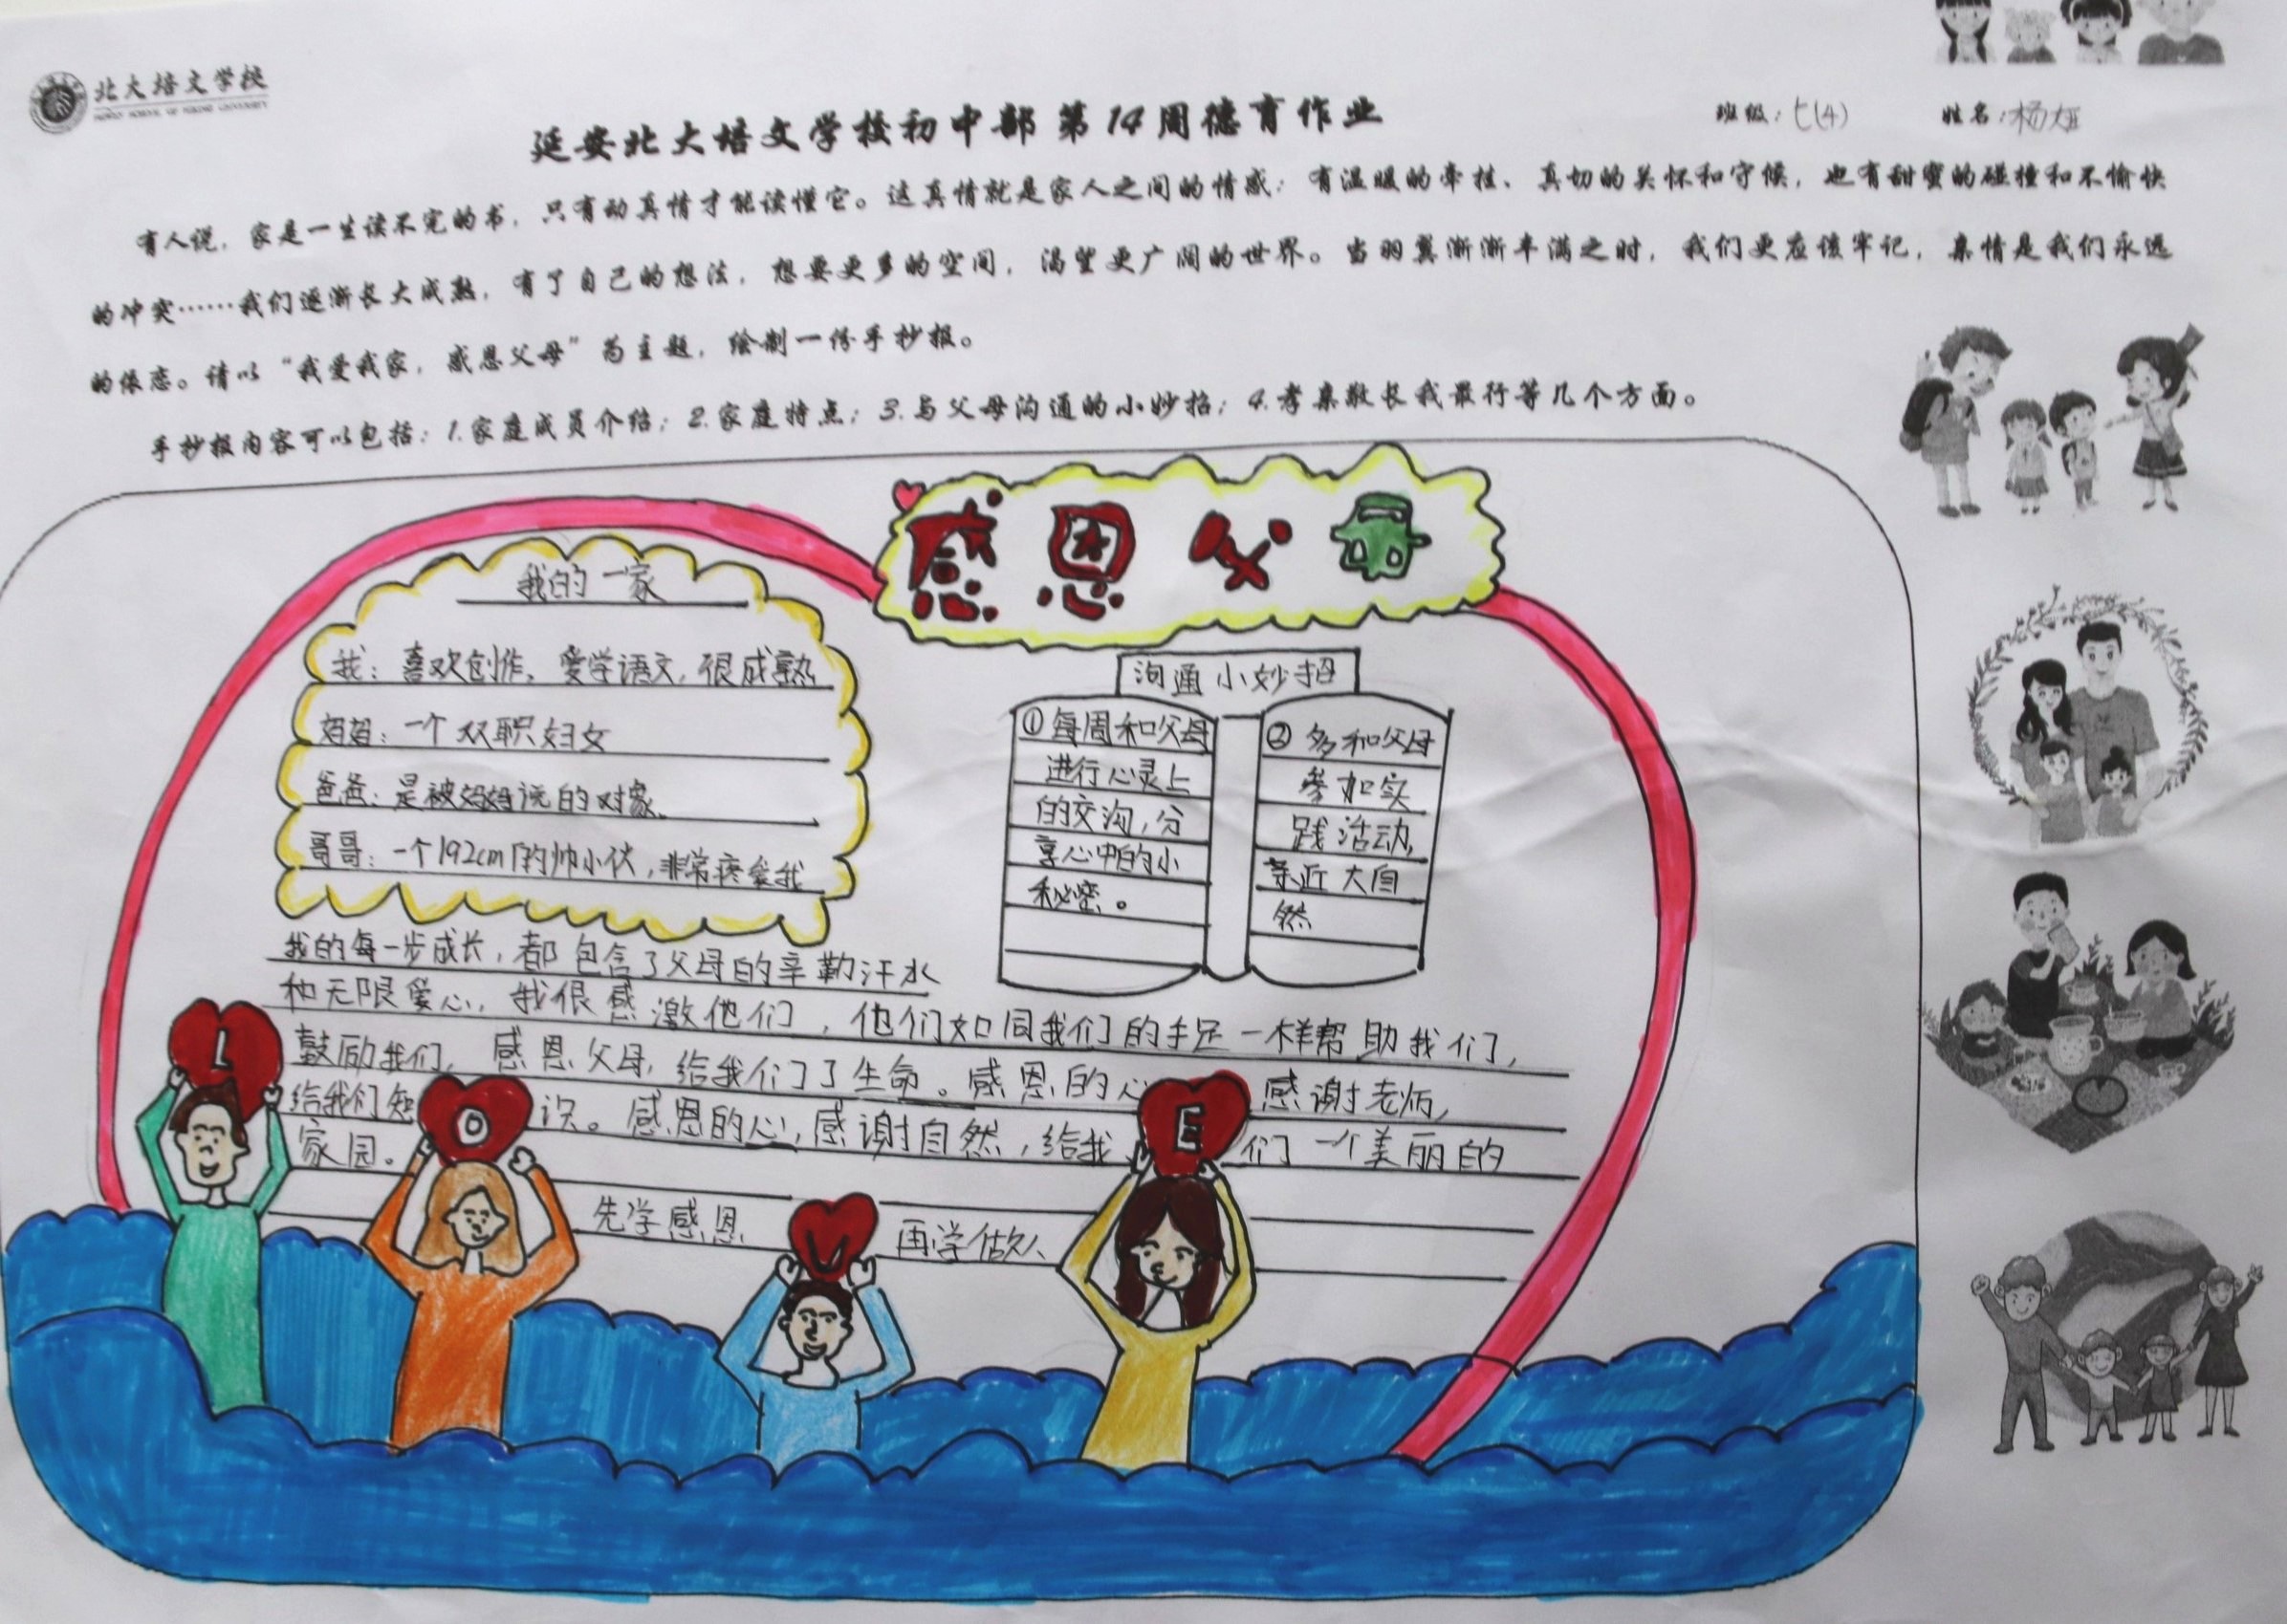 北大培文学校
PEIWEN SCHOOL OF PEKING UNIVERSITY
延安北大培文学校初中部第14周德育作业
班级：七(4)
姓名：杨娅
有人说，家是一生读不完的书，只有动真情才能读懂它。这真情就是家人之间的情感：有温暖的牵挂、真切的关怀和守候，也有甜蜜的碰撞和不愉快
的冲突……我们逐渐长大成熟，有了自己的想法，想要更多的空间，渴望更广阔的世界。当羽翼渐渐丰满之时，我们更应该牢记，亲情是我们永远
的依恋。请以“我爱我家，感恩父母”为主题，绘制一份手抄报。
手抄报内容可以包括：1.家庭成员介绍；2.家庭特点；3.与父母沟通的小妙招；4.孝亲敬长我最行等几个方面。
感恩父母
我的一家
我：喜欢创作、爱学语文，很成熟
妈妈：一个双职妇女
爸爸：是被妈妈说的对象、
哥哥：一个192cm的帅小伙，非常疼爱我
沟通小妙招
①每周和父母
进行心灵上
的交沟，分
享心中的小
秘密。
②多和父母
参加实
践活动，
亲近大自
然
我的每一步成长，都包含了父母的辛勤汗水
和无限爱心，我很感激他们，他们如同我们的手足一样帮助我们，
鼓励我们，感恩父母，给我们了生命。感恩的心感谢老师，
给我们知识。感恩的心，感谢自然，给我们一个美丽的
家园。
先学感恩 再学做人
L
O
V
E